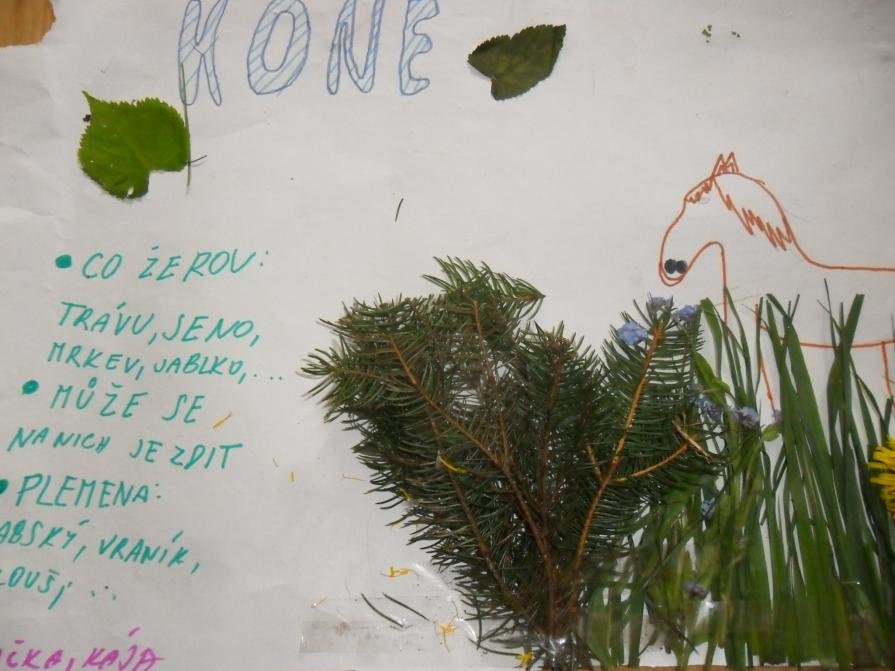 KONE
• CO ŽEROU:
TRÁVU, SENO,
MRKEV, JABLKO, ...
• MŮŽE SE
NA NICH JEZDIT
• PLEMENA:
ABSKÝ, VRANÍK,
LOUŠ, ...
IČKA, KÁJA